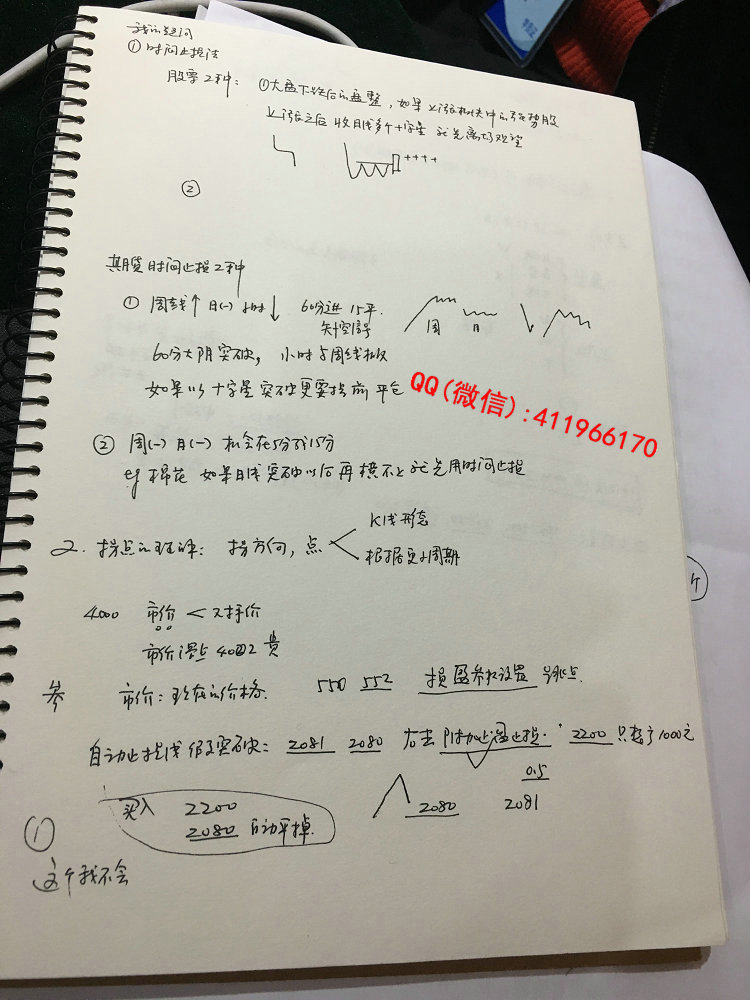 我的疑问
① 时间止损法
股票2种: ①大盘下跌后的盘整,如果上涨 中的强势股
上涨之后 收日线多个十字星 就先离场观望
++++
②
期货时间止损2种
① 周线↑ 日(一) 小时↓ 60分进 15平.
周 日
60分大阴突破, 小时与周线
如果以十字星突破更要提前平仓
QQ(微信):411966170
② 周(一) 日(一) 机会在5分到15分
eg 棉花 如果日线突破以后再横不上就先用时间止损
2. 拐点的理解: 拐方向,点 K线形态
根据更小周期
4000 市价 < 对手价
市价 4002 贵
参 市价:现在的价格. 550 552 损盈参数设置 点
自动止损 假突破: 2081 2080 右击 附加止盈止损. 2200 只 了1000元
0.5
买入 2200 2080 2081
2080 自动平掉.
①
这个我不会